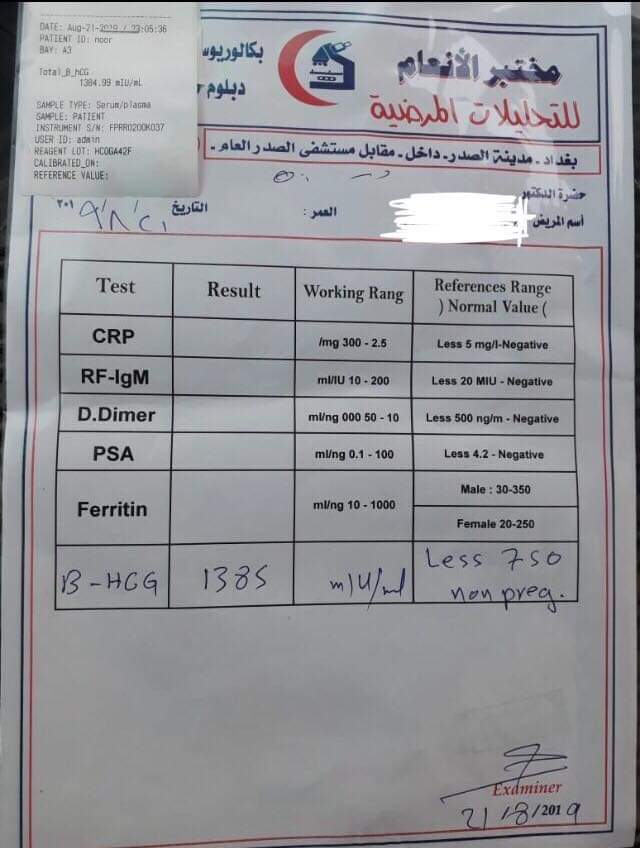 DATE: Aug-21-2019 / 23:05:36
PATIENT ID: noor
BAY: A3
Total_B_hCG
1384.99 mIU/mL
SAMPLE TYPE: Serum/plasma
SAMPLE: PATIENT
INSTRUMENT S/N: FPRR0200K037
USER ID: admin
REAGENT LOT: HCGGA42F
CALIBRATED_ON:
REFERENCE VALUE:
بكالوريوس
دبلوم
مختبر الأنعام
للتحليلات المرضية
بغداد - مدينة الصدر - داخل - مقابل مستشفى الصدر العام -
حضرة الدكتور
أسم المريض
العمر :
التاريخ ٢١/٨/٢٠١٩
Test Result Working Rang References Range
) Normal Value (
CRP /mg 300 - 2.5 Less 5 mg/l-Negative
RF-IgM ml/IU 10 - 200 Less 20 MIU - Negative
D.Dimer ml/ng 000 50 - 10 Less 500 ng/m - Negative
PSA ml/ng 0.1 - 100 Less 4.2 - Negative
Ferritin ml/ng 10 - 1000 Male : 30-350
Female 20-250
B-HCG 1385 mIU/ml Less 750
non preg.
Examiner
21/8/2019